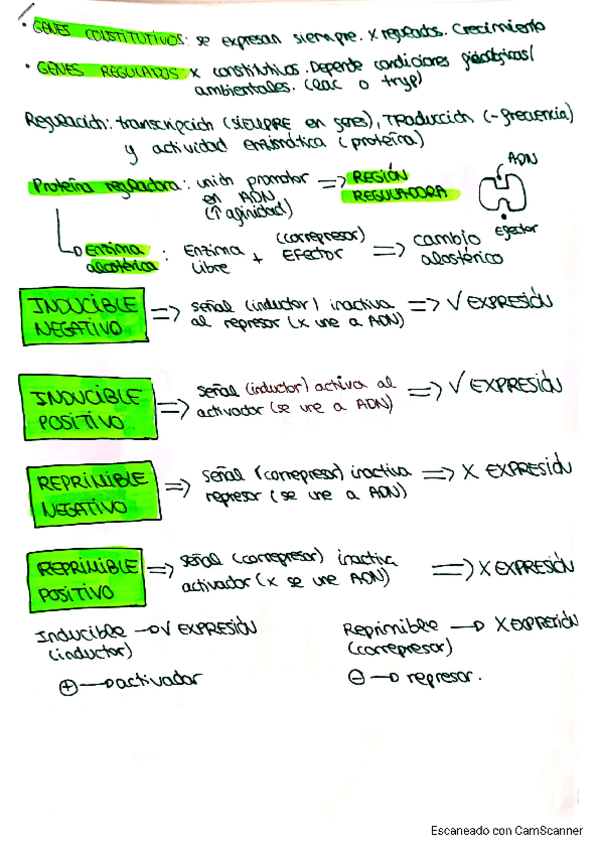 • GENES CONSTITUTIVOS: se expresan siempre. X regulados. Crecimiento
• GENES REGULADOS X constitutivos. Depende condiciones fisiológicas/
ambientales. (lac o tryp)
Regulación: transcripción (SIEMPRE en genes), Traducción (-frecuencia)
y actividad enzimática (proteína)
Proteína reguladora: unión promotor => REGIÓN
en ADN REGULADORA
(↑ afinidad)
ADN
Efector
Enzima alostérica : Enzima libre + (correpresor) EFECTOR => cambio alostérico
INDUCIBLE NEGATIVO => señal (inductor) inactiva => √ EXPRESIÓN
al represor (x une a ADN)
INDUCIBLE POSITIVO => señal (inductor) activa al => √ EXPRESIÓN
activador (se une a ADN)
REPRIMIBLE NEGATIVO => señal (correpresor) inactiva => X EXPRESIÓN
represor (se une a ADN)
REPRIMIBLE POSITIVO => señal (correpresor) inactiva => X EXPRESIÓN
activador (x se une ADN)
Inducible → √ EXPRESIÓN
(inductor)
Reprimible → X EXPRESIÓN
(correpresor)
⊕ → activador
⊖ → represor.
Escaneado con CamScanner